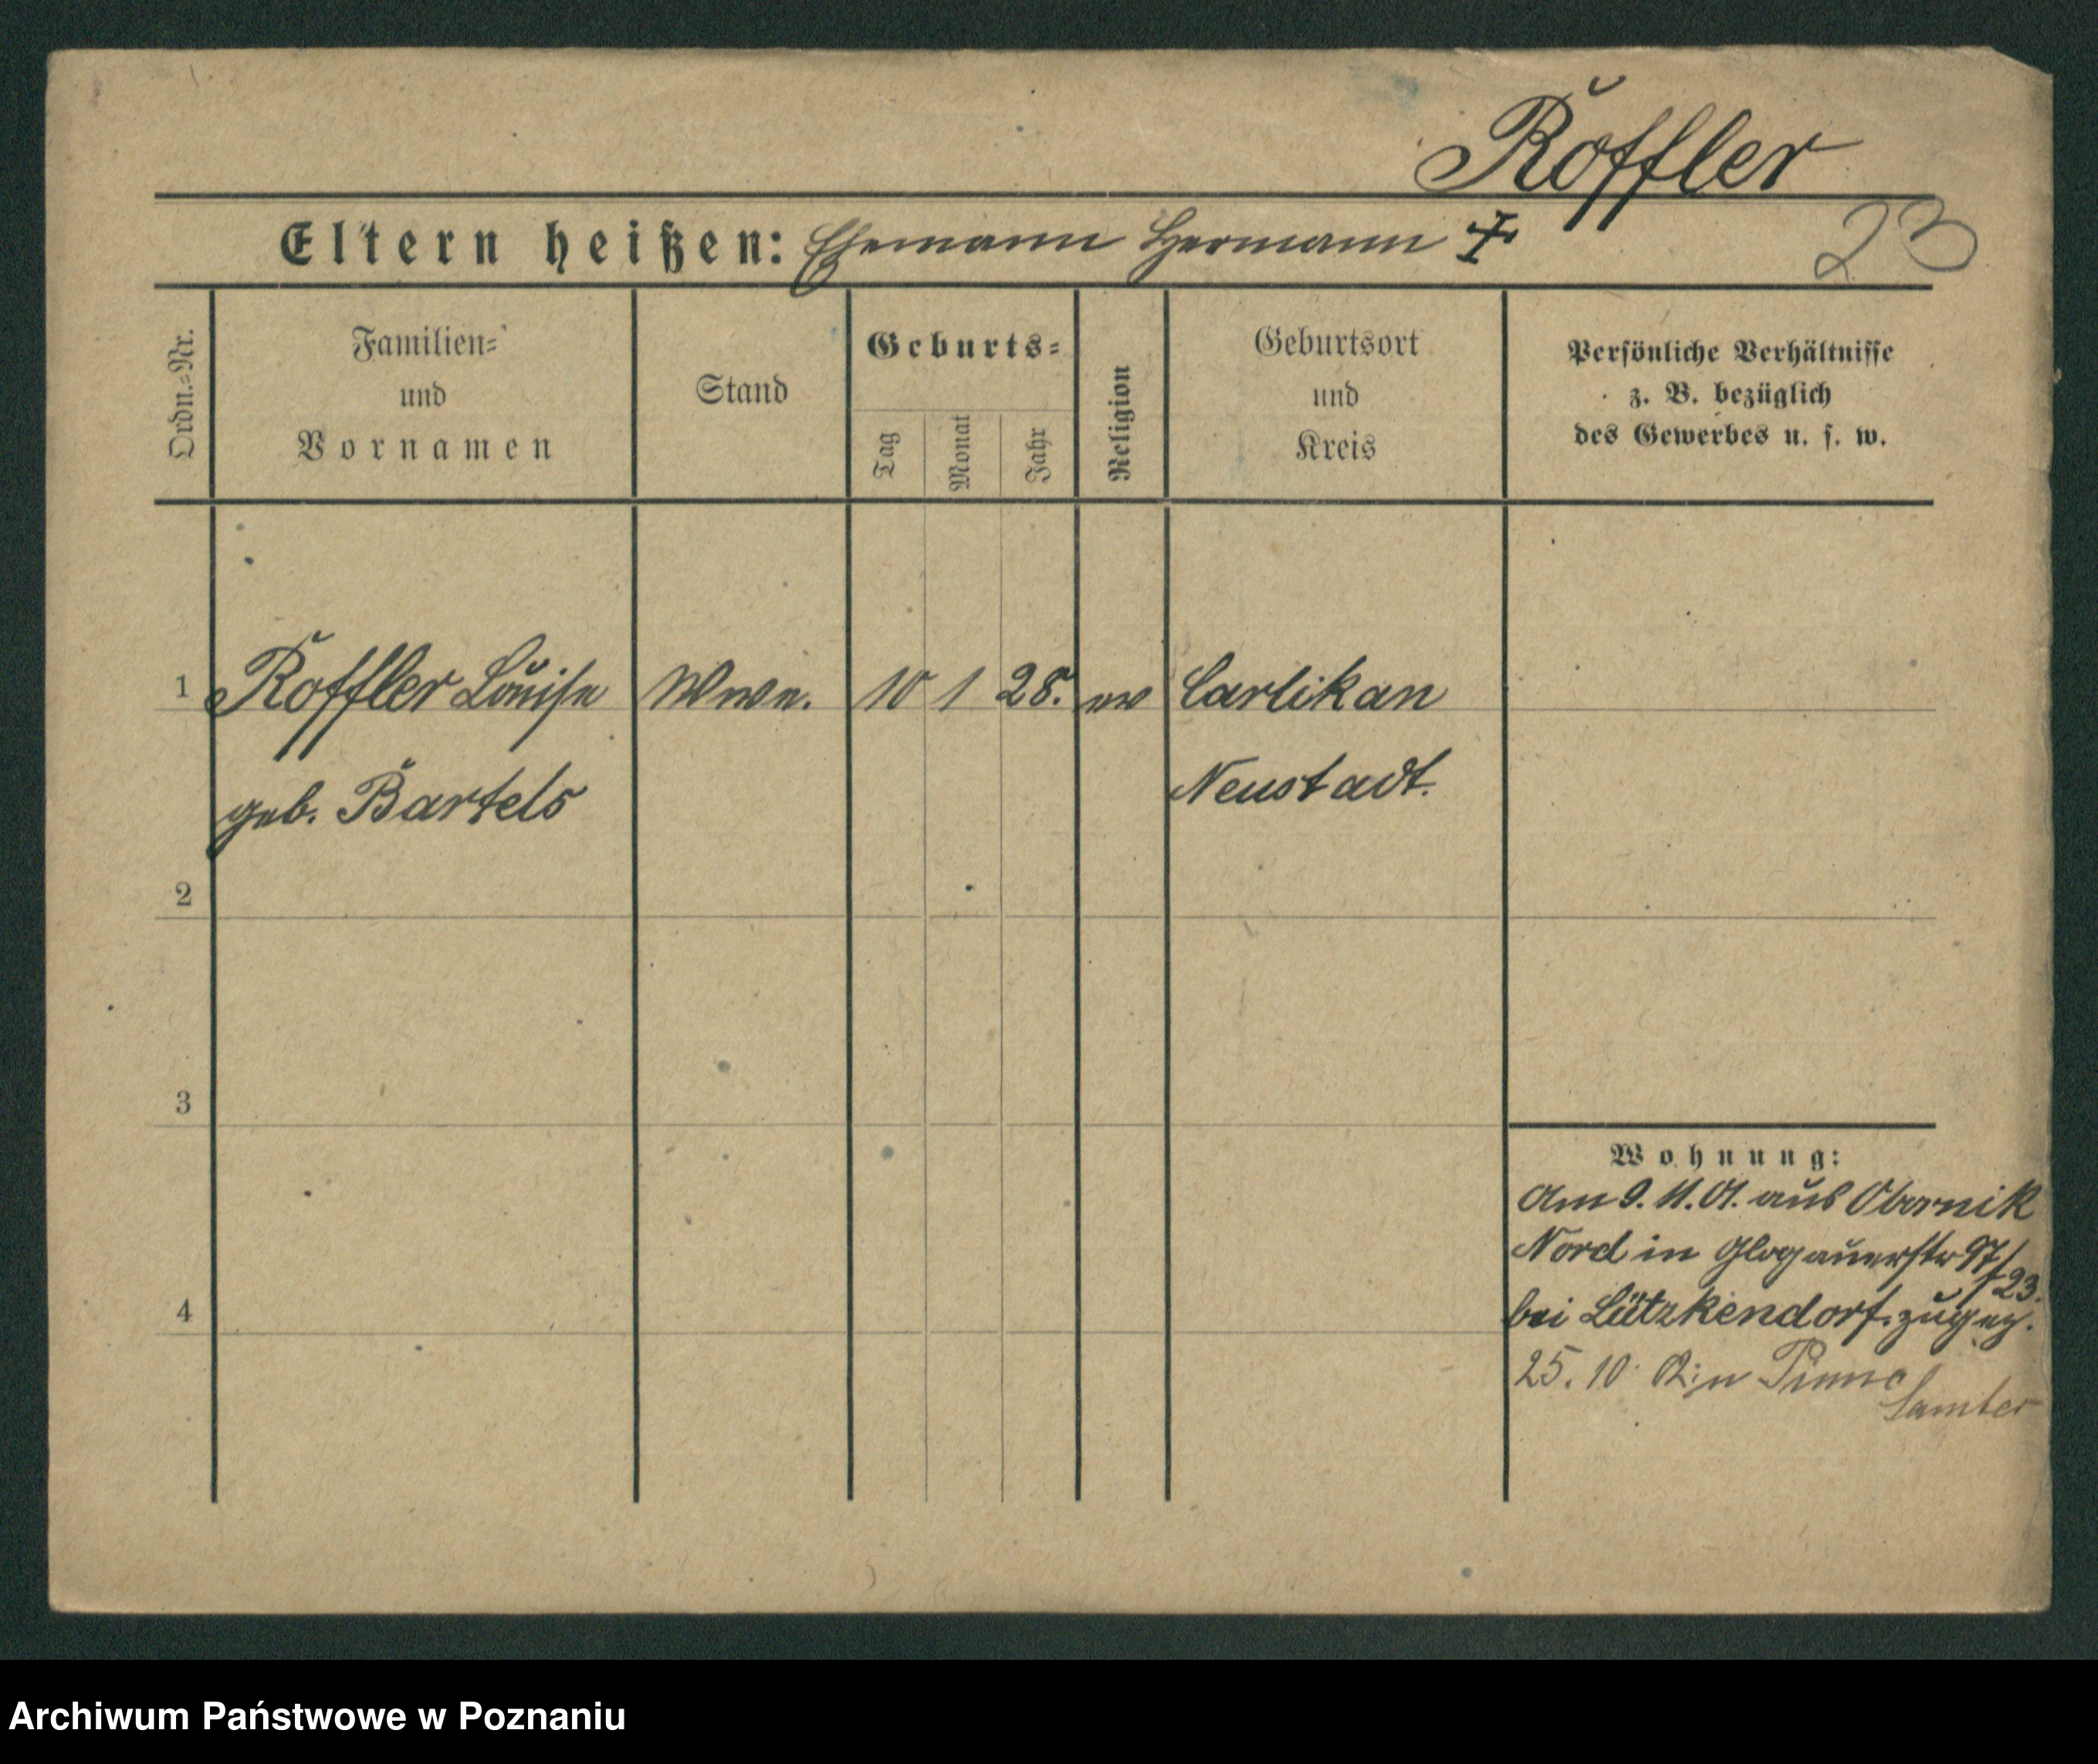 Roffler
Eltern heißen: Ehemann Hermann †
23
Ordn.-Nr.
Familien-
und
Vornamen
Stand
Geburts-
Tag
Monat
Jahr
Religion
Geburtsort
und
Kreis
Persönliche Verhältnisse
z. B. bezüglich
des Gewerbes u. s. w.
1 Roffler Louise Wwe. 10 1 28. ev Carlikan
geb. Bartels Neustadt.
2
3
Wohnung:
Am 9.11.01. aus Obornik
Nord in Glogauerstr 97/23.
4 bei Lützkendorf. zugez.
25. 10 02 n Pinne
Samter
Archiwum Państwowe w Poznaniu